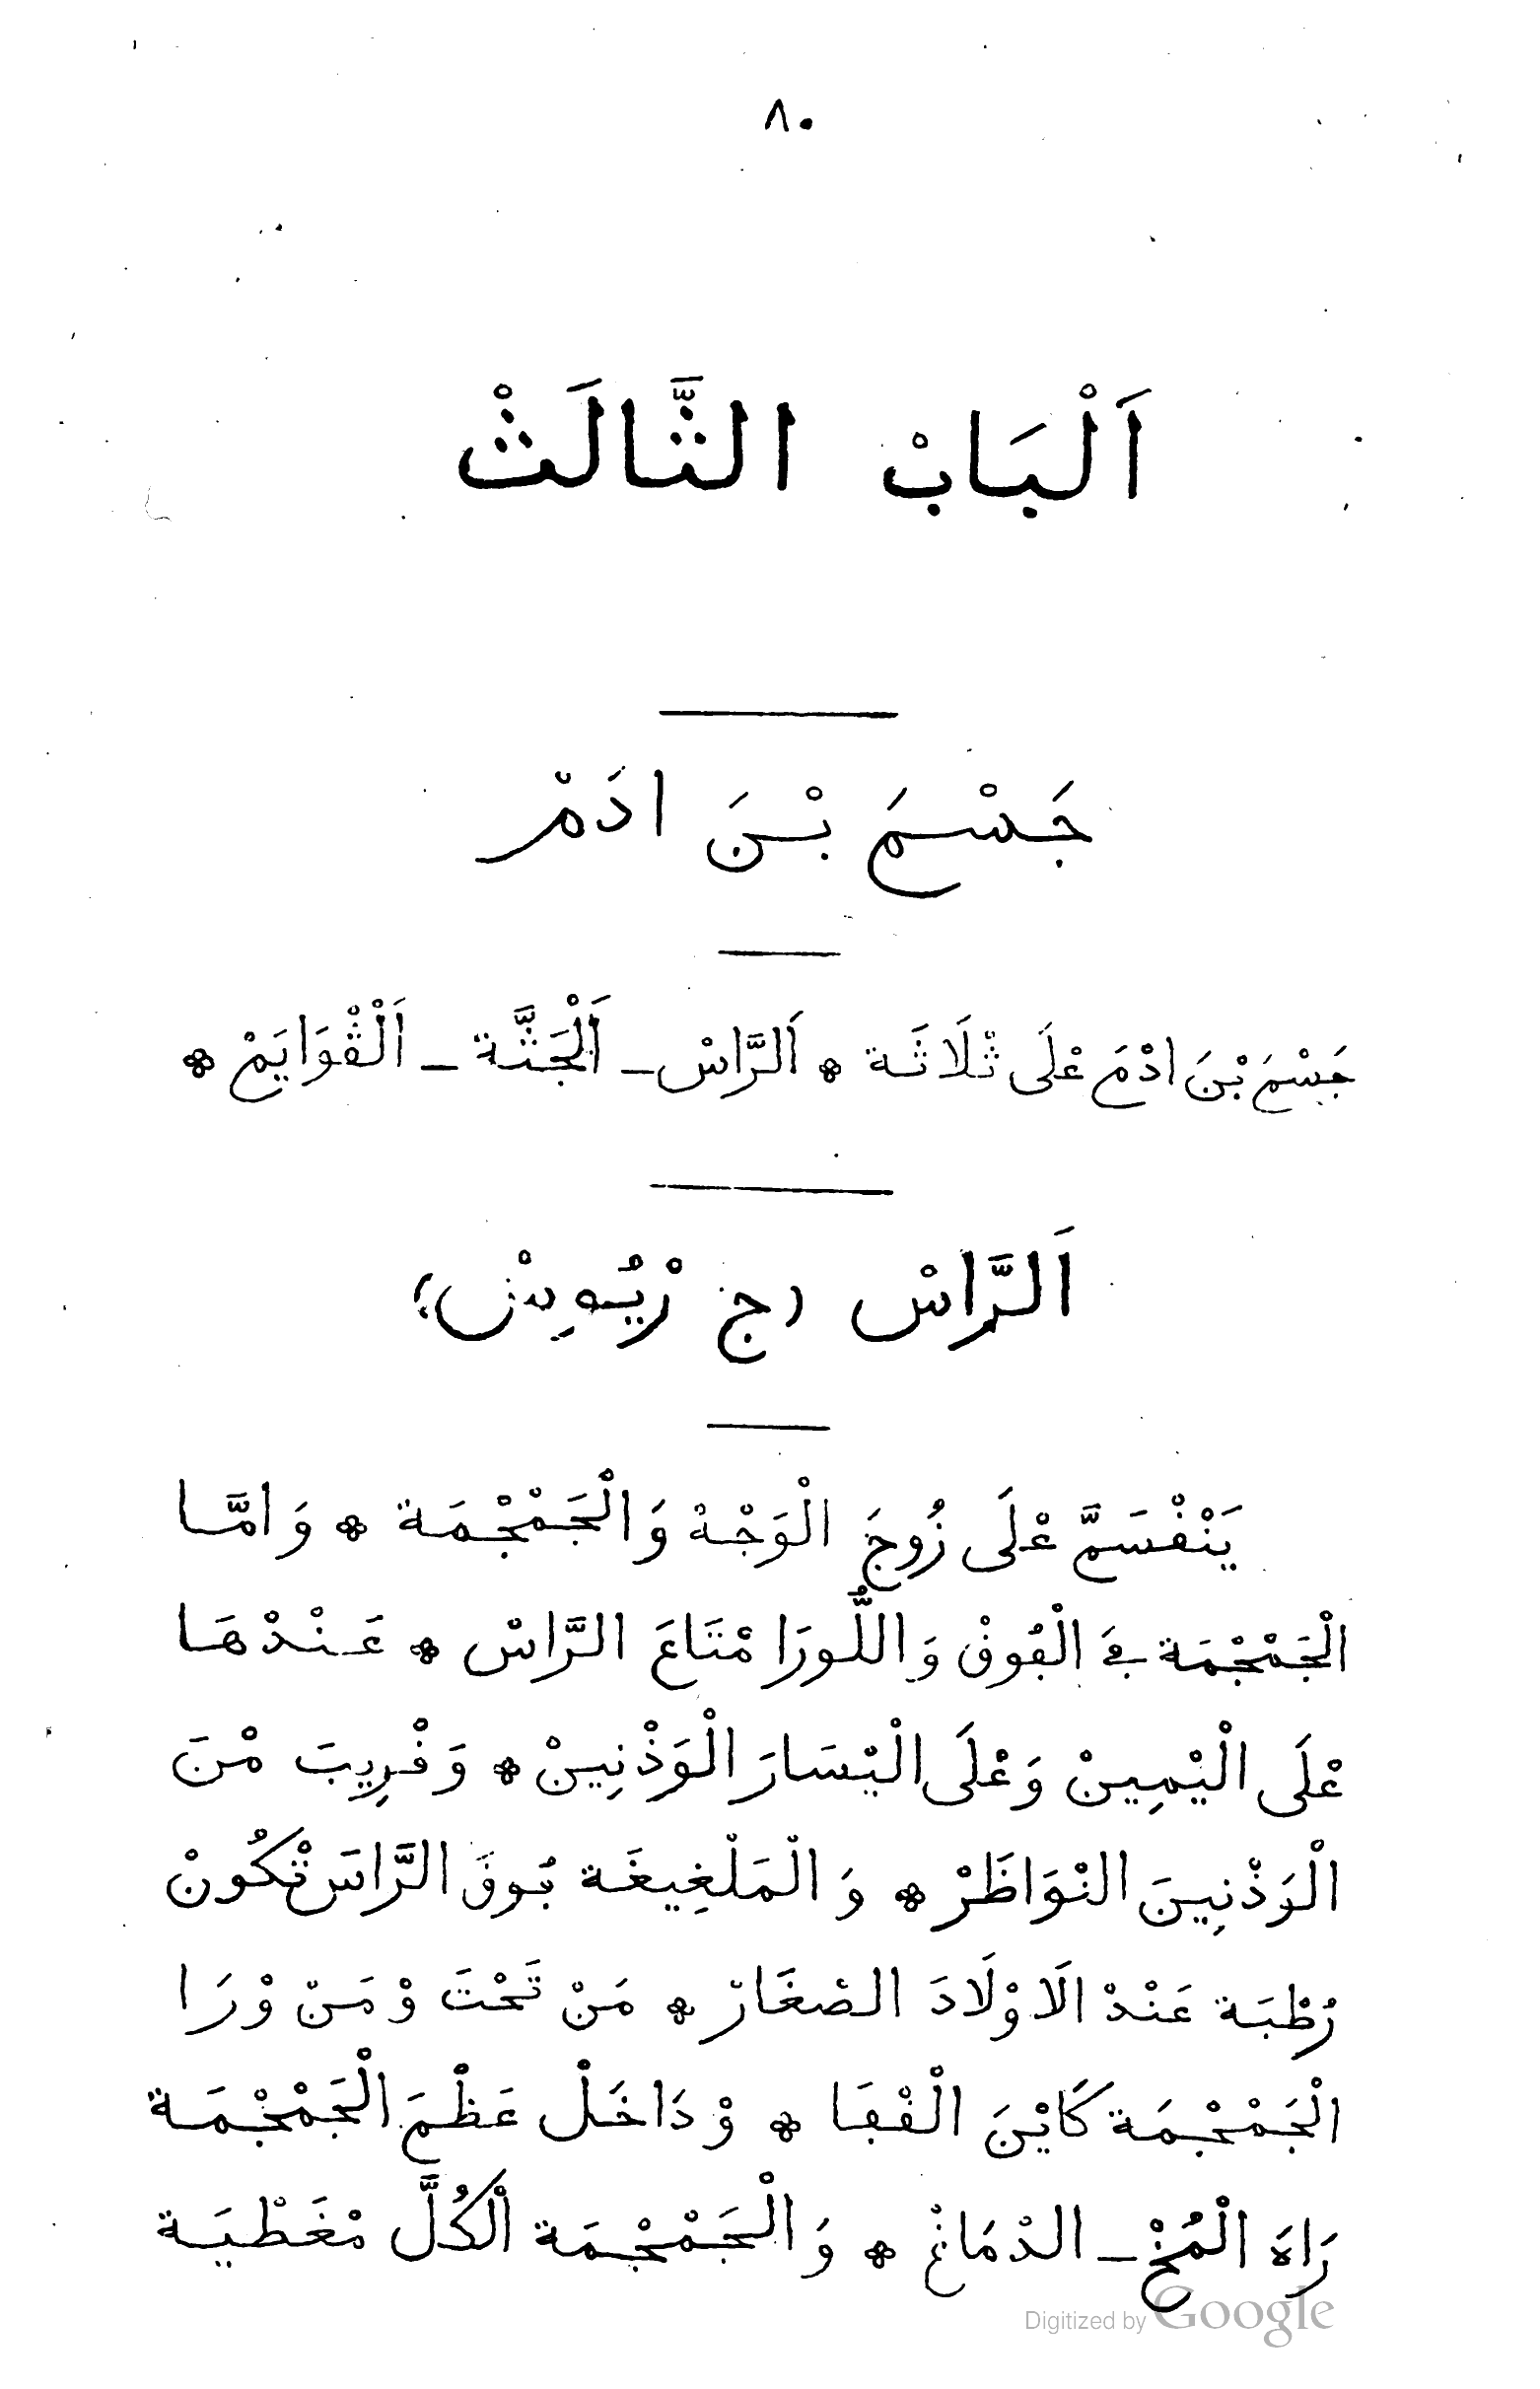 ٨٠
اَلْبَابْ الثَّالَثْ
جَسْمَ بْنَ ادَمْ
جَسْمَ بْنَ ادْمَ عْلَى ثْلَاثَة * اَلرَّاسْ ـ اَلْجَثَّة ـ اَلْڧْوَايَمْ *
اَلرَّاسْ (ج رْيُوسْ)
يَنْڧْسَمَّ عْلَى زُوجَ الْوَجْهْ وَالْجَمْجْمَة * وَامَّا
الْجَمْجْمَة فِے الْڢُوڧْ وَاللُّورَا مْتَاعَ الرَّاسْ * عَنْدْهَا
عْلَى الْيْمِينْ وَعْلَى الْيْسَارَ الْوَذْنِينْ * وَڧْرِيبَ مْنَ
الْوَذْنِينَ النْوَاظَرْ * وَالْمَلْغِيغَة ڢُوڧَ الرَّاسَ تْكُونْ
رُطْبَة عَنْدْ الَاوْلَادَ الصْغَارْ * مَنْ تَحْتَ وْمَنْ وْرَا
الْجَمْجْمَة كَايْنَ الْڧْڢَا * وْدَاخَلْ عَظْمَ الْجَمْجْمَة
رَاهَ الْمُخْ ـ الدْمَاغْ * وَالْجَمْجْمَة الْكُلَّ مْغَطْيَة
Digitized by Google